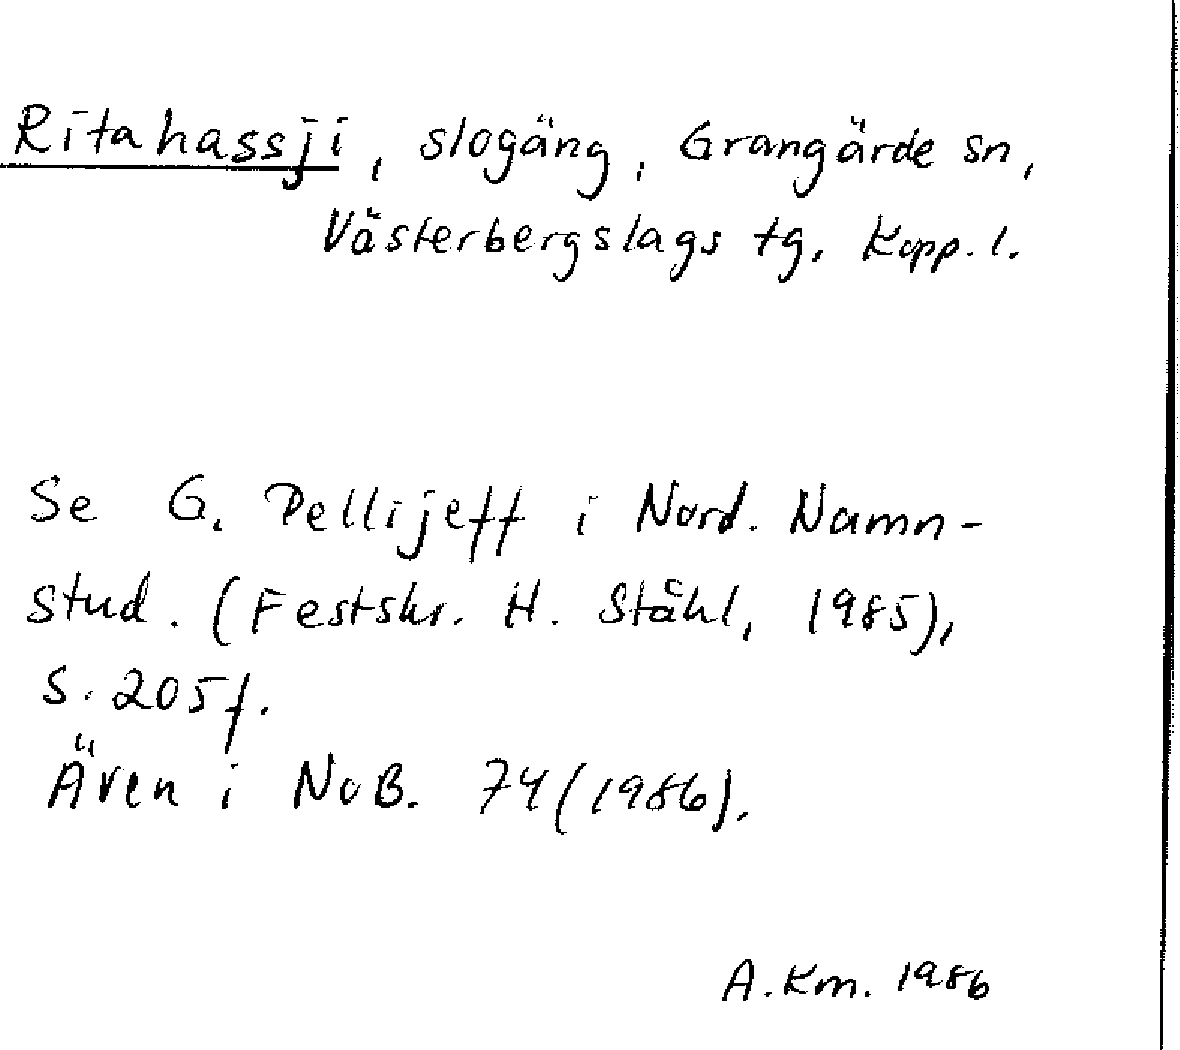 Ritahassji, slogäng, Grangärde sn,
Västerbergslags tg. Kopp. l.
Se G. Pellijeff i Nord. Namn-
stud. (Festskr. H. Ståhl, 1985),
s. 205f.
Även i NoB. 74 (1986).
A.Km. 1986